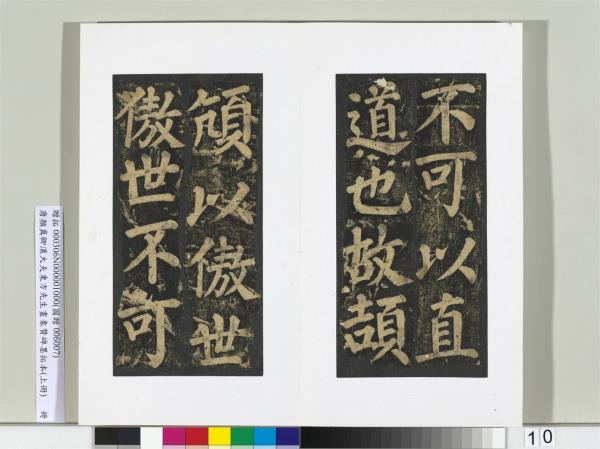 不可以直
道也故頡
頏以傲世
傲世不可
贈拓 000306N000001000(國贈 006007)
唐顏真卿漢大夫東方先生畫象贊碑墨拓本(上冊) 冊
10